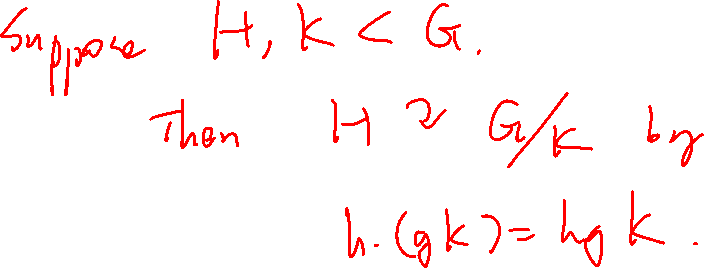 Suppose H, K < G.
Then H ↷ G/K by
h.(gK) = hgK.